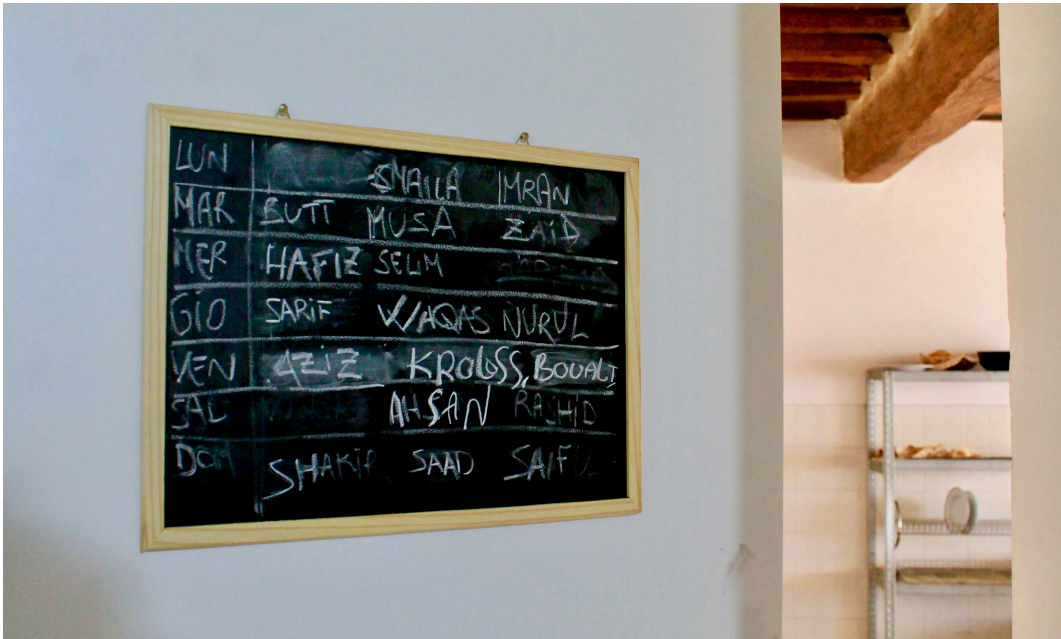 LUN SMAILA IMRAN
MAR BUTT MUSA ZAID
MER HAFIZ SELIM
GIO SARIF WAQAS NURUL
VEN AZIZ KROUSS, BOUALI
SAB AHSAN RASHID
DOM SHAKIR SAAD SAIFUL